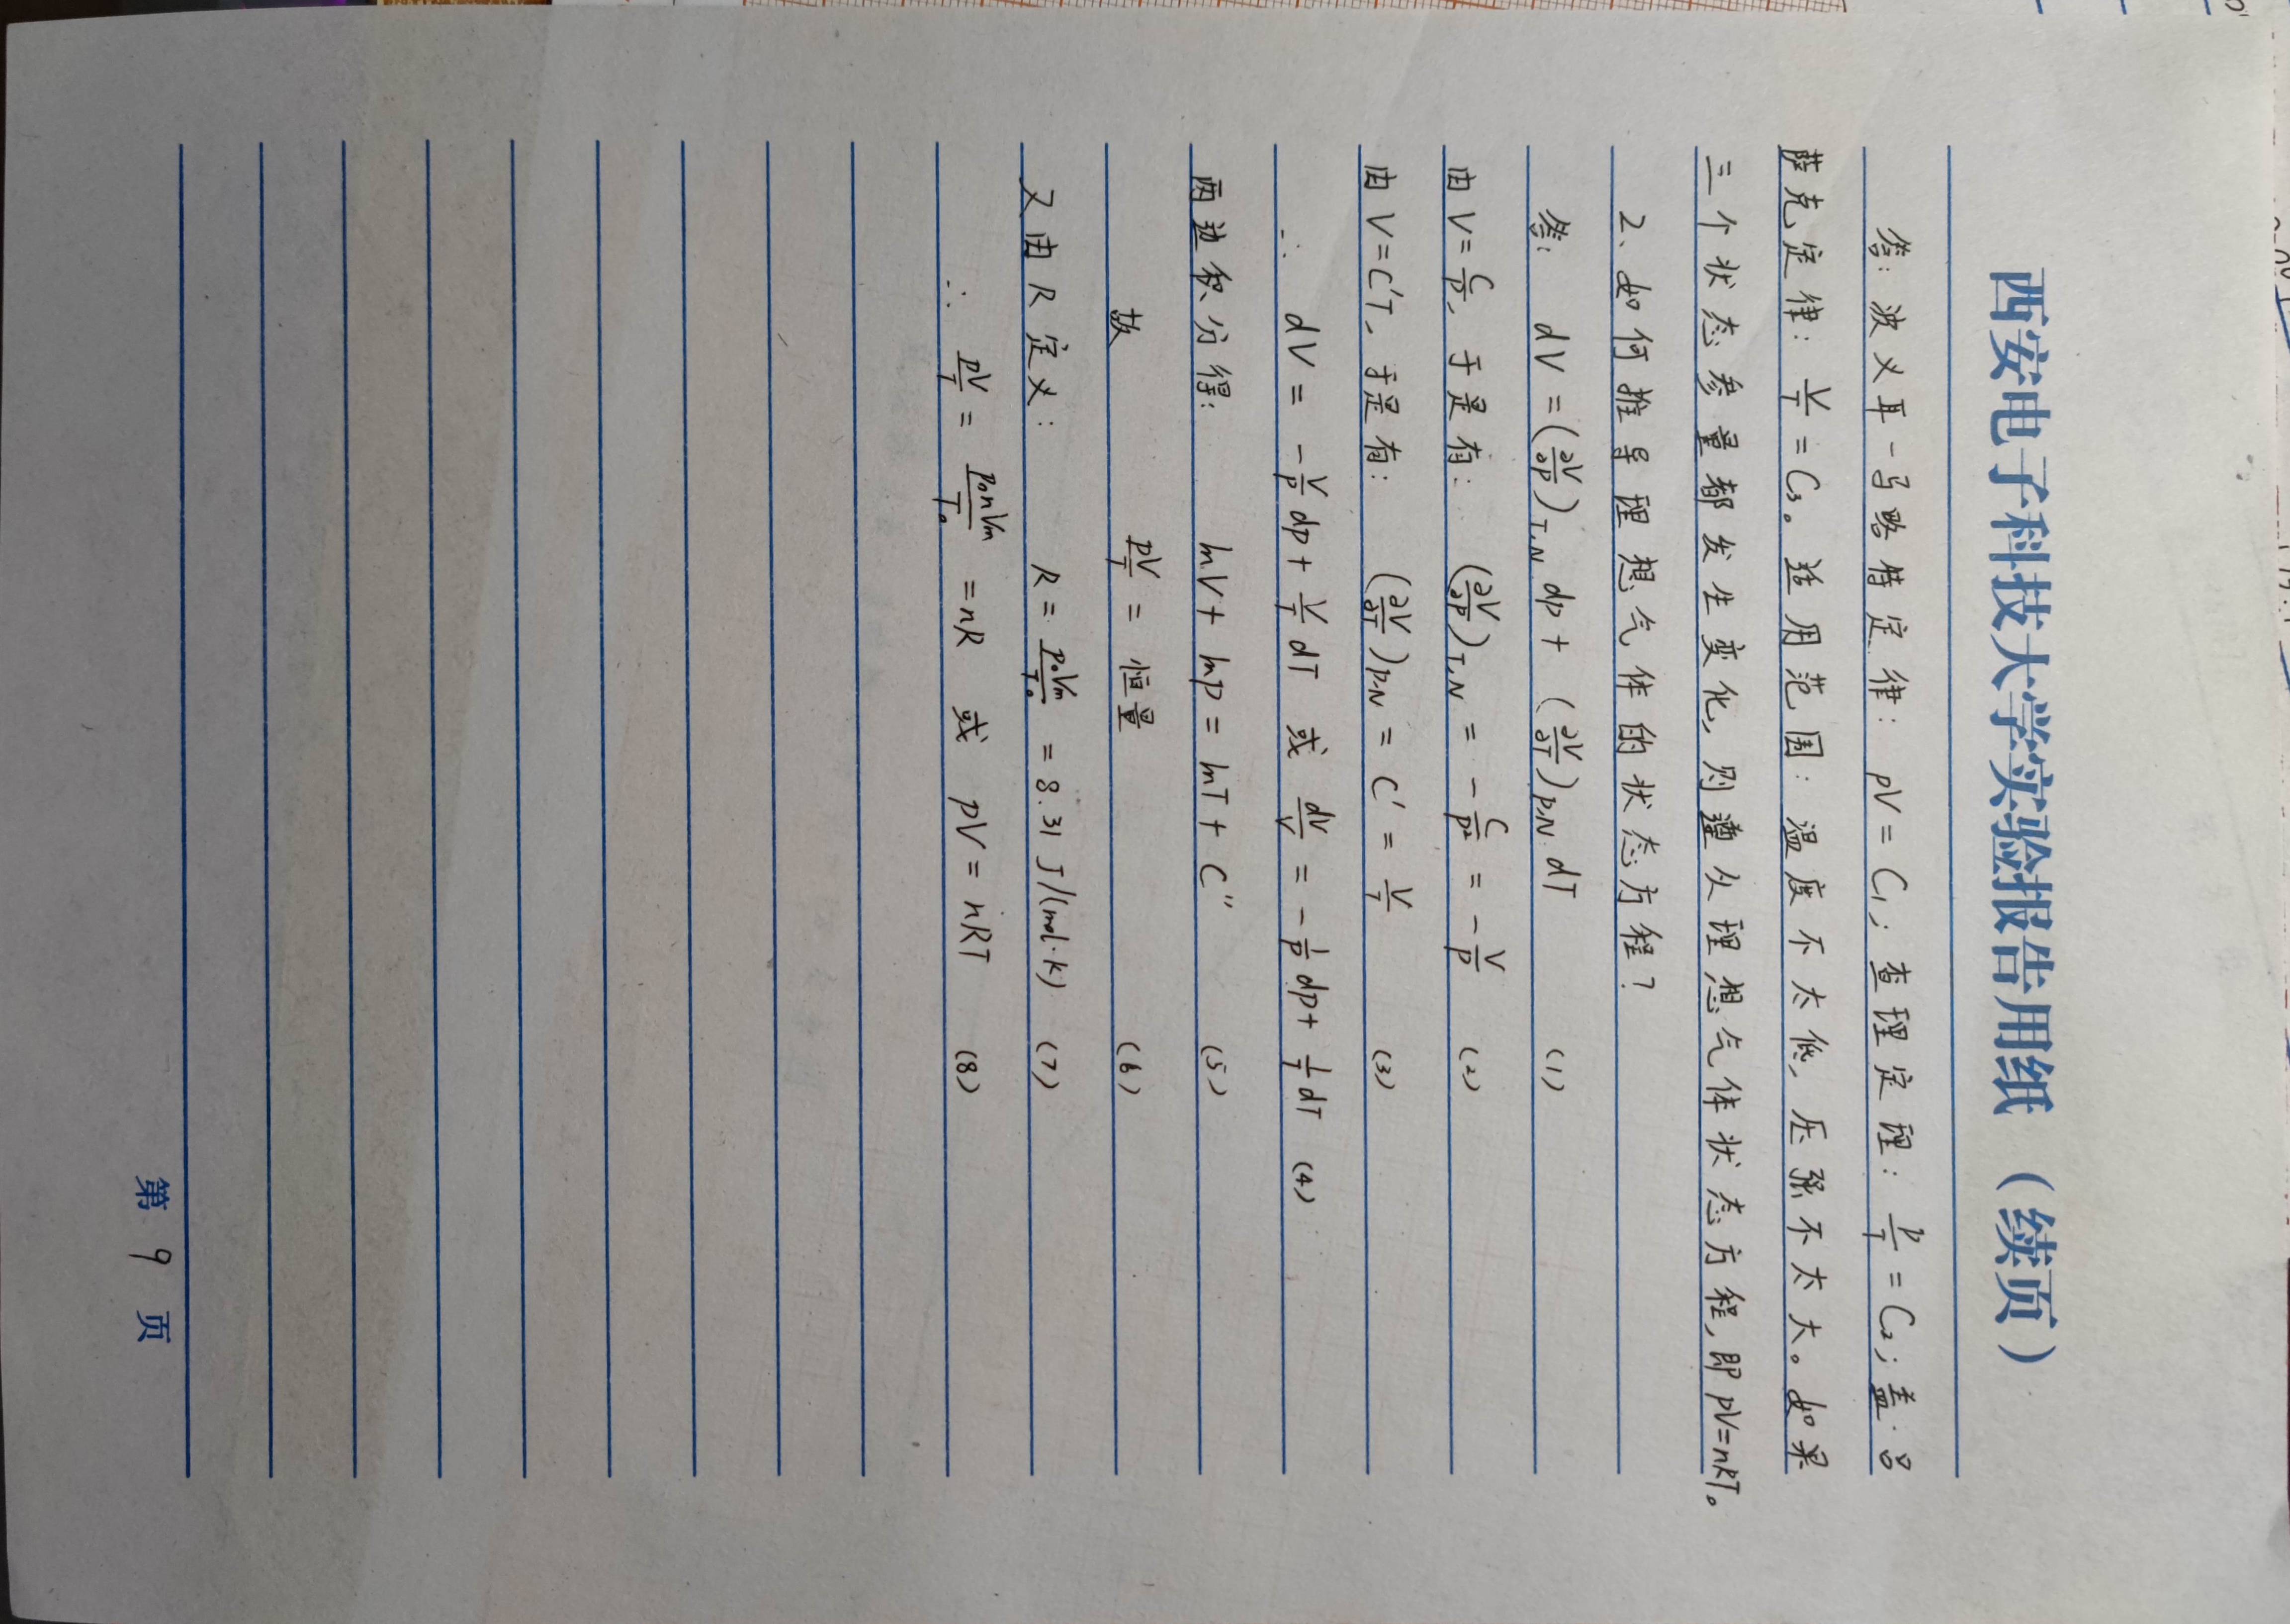 西安电子科技大学实验报告用纸（续页）
答: 波义耳-马略特定律: pV = C₁; 查理定理: p/T = C₂; 盖·吕
萨克定律: V/T = C₃。适用范围: 温度不太低, 压强不太大。如果
三个状态参量都发生变化, 则遵从理想气体状态方程, 即 pV=nRT。
2、如何推导理想气体的状态方程?
答: dV = (∂V/∂P)_{T,N} dp + (∂V/∂T)_{P,N} dT (1)
由 V = C/P, 于是有: (∂V/∂P)_{T,N} = -C/P² = -V/P (2)
由 V=C'T, 于是有: (∂V/∂T)_{P,N} = C' = V/T (3)
∴ dV = -V/P dp + V/T dT 或 dV/V = -1/P dp + 1/T dT (4)
两边积分得: lnV + lnp = lnT + C'' (5)
故 pV/T = 恒量 (6)
又由 R 定义: R = p₀Vm/T₀ = 8.31 J/(mol·K) (7)
∴ pV/T = p₀nVm/T₀ = nR 或 pV = nRT (8)
第 9 页